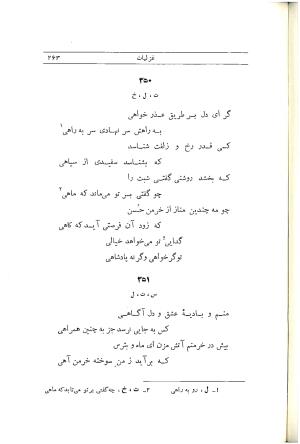 غزلیات ۲۶۳
۳۵۰
ت ، ل ، خ
گر ای دل بر طریق عذر خواهی
به راهش سر نهادی سر به راهی۱
کسی قدر رخ و زلفت شناسد
که بشناسد سفیدی از سیاهی
که بخشد روشنی گفتی شبت را
چو گفتی بر تو می‌ماند که ماهی۲
چو مه چندین مناز از خرمن حُسن
که زود آن فرستی آید که کاهی
گدایی تو می‌خواهد خیالی
تو گر خواهی وگر نه پادشاهی
۳۵۱
س ، ت ، ل
منم و بادیهٔ عشق و دل آگاهی
کس به جایی نرسد جز به چنین همراهی
بیش در خرمنم آتش مزن ای ماه و بترس
که برآید ز من سوخته خرمن آهی
۱ـ ل ، رو به راهی ۲ـ ت ، خ ، چه گفتی بر تو می‌تابد که ماهی